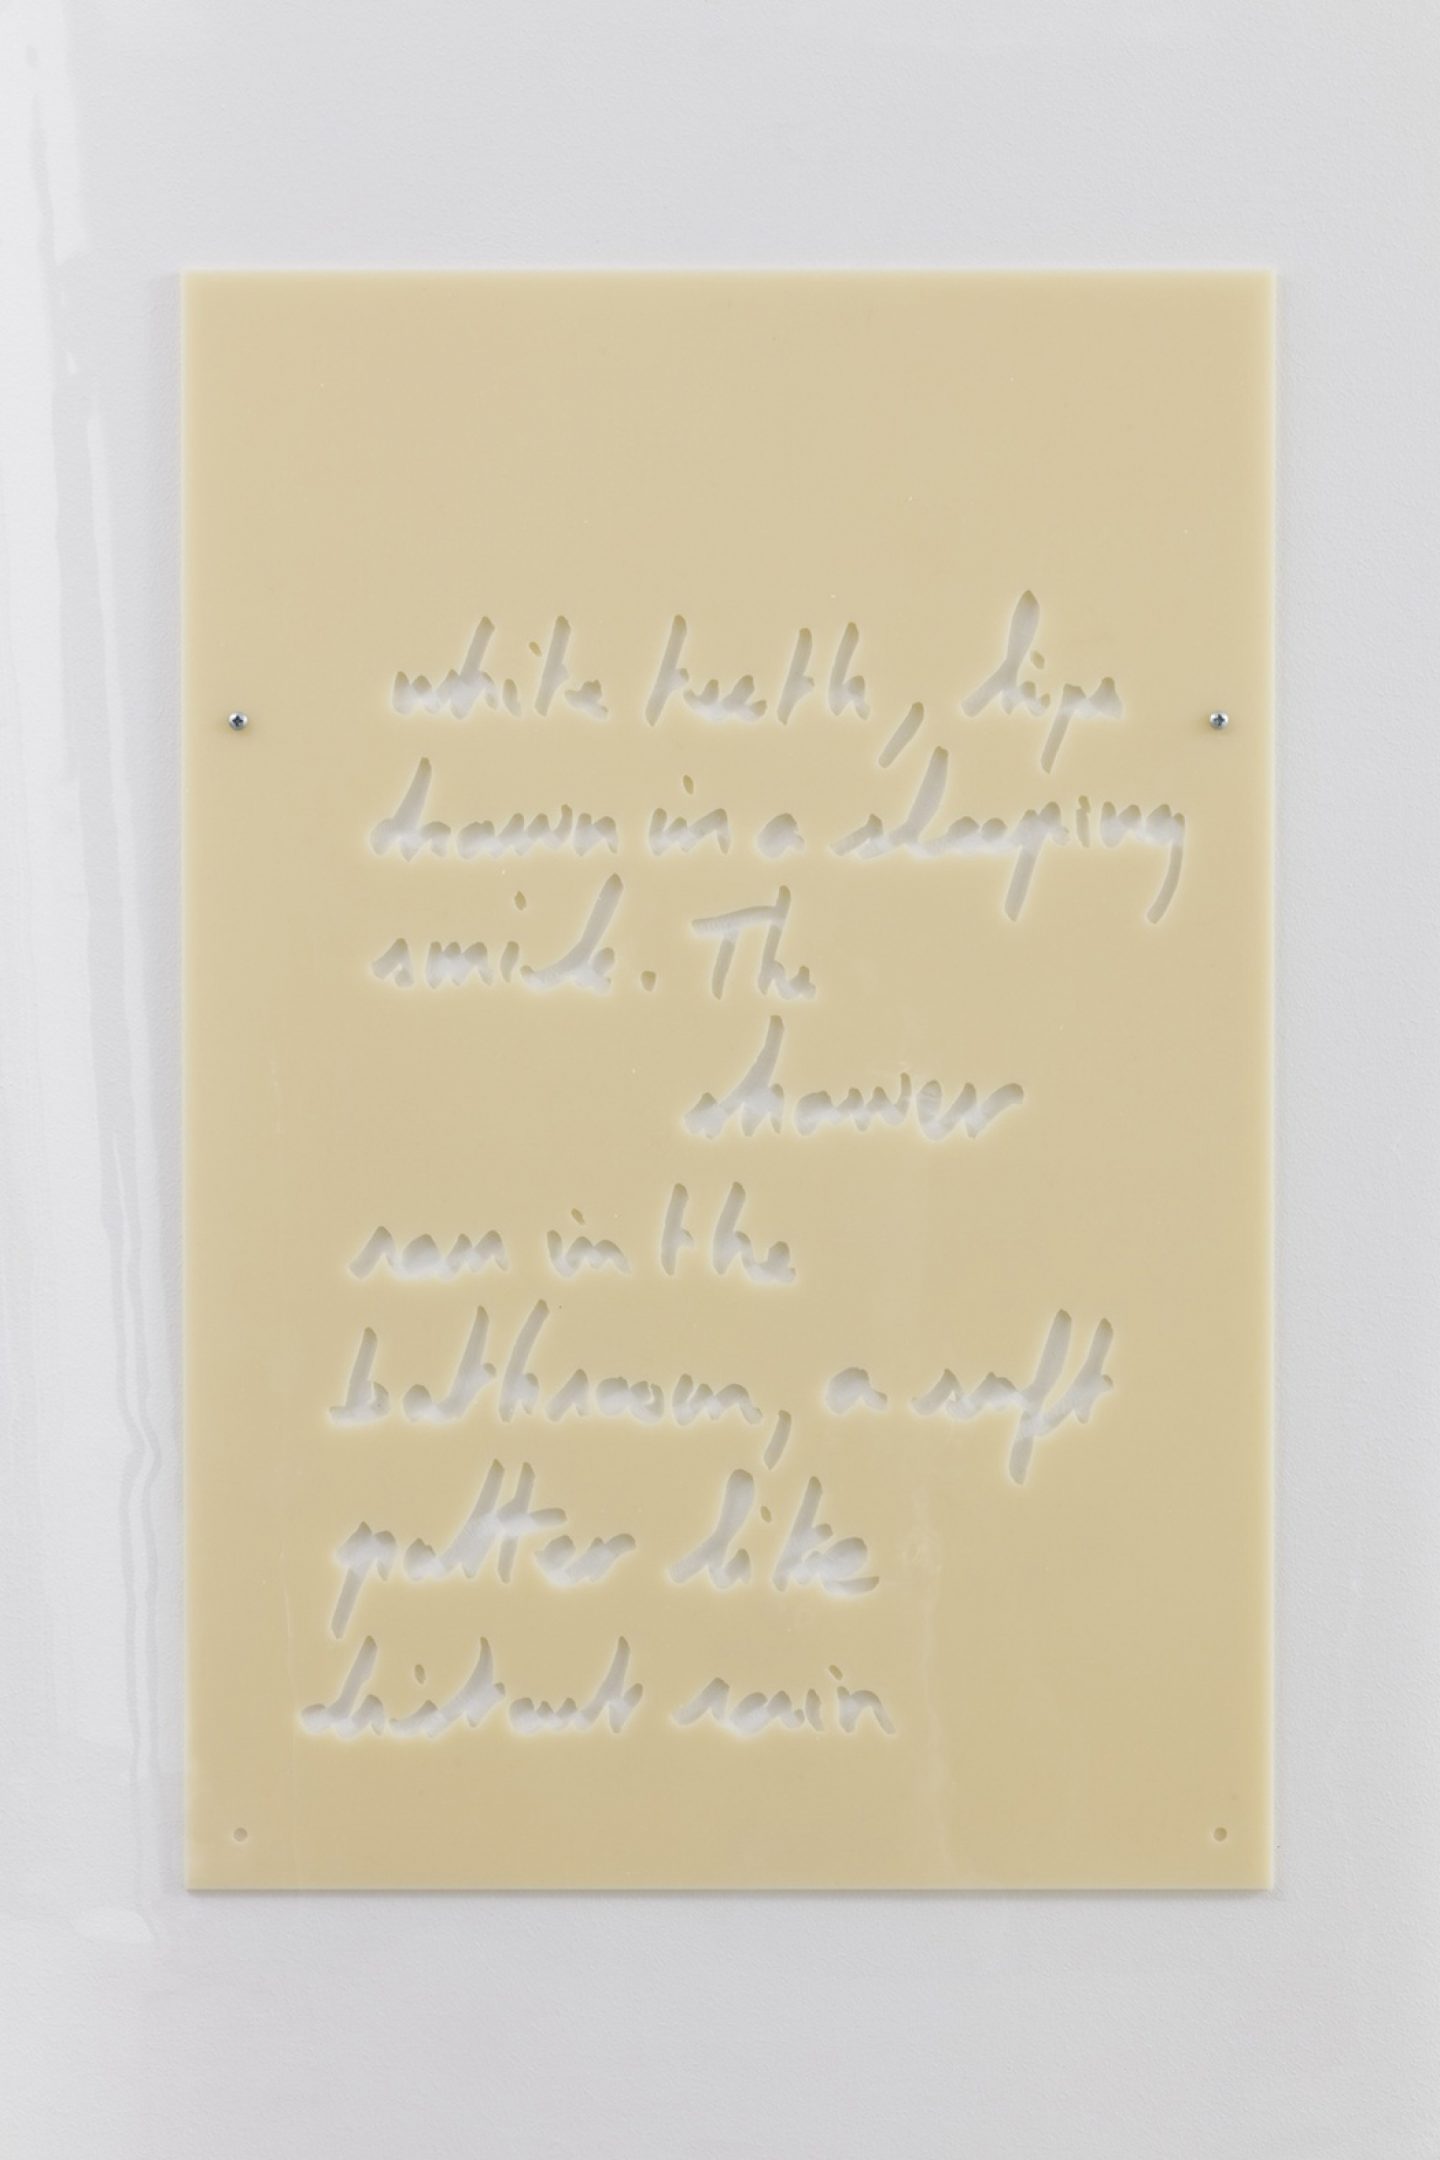 white teeth, lips
drawn in a sleeping
smile. The
shower
ran in the
bathroom, a soft
patter like
distant rain